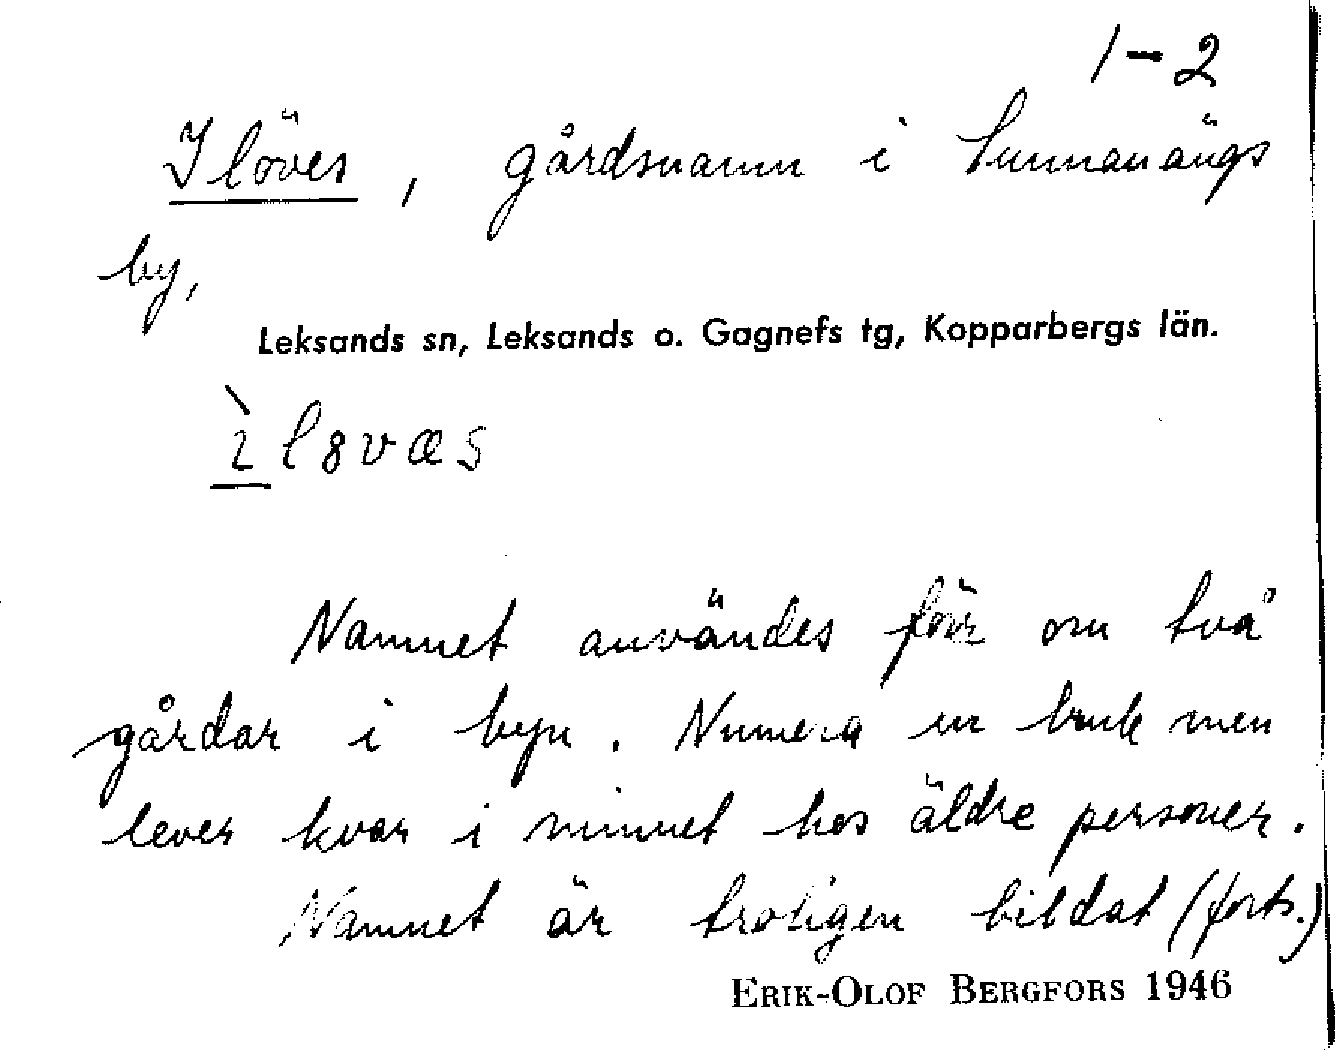 1-2
Ilöves, gårdsnamn i Sunnanängs
by,
Leksands sn, Leksands o. Gagnefs tg, Kopparbergs län.
Namnet användes förr om två
gårdar i byn. Numera ur bruk men
lever kvar i minnet hos äldre personer.
Namnet är troligen bildat (forts.)
ERIK-OLOF BERGFORS 1946